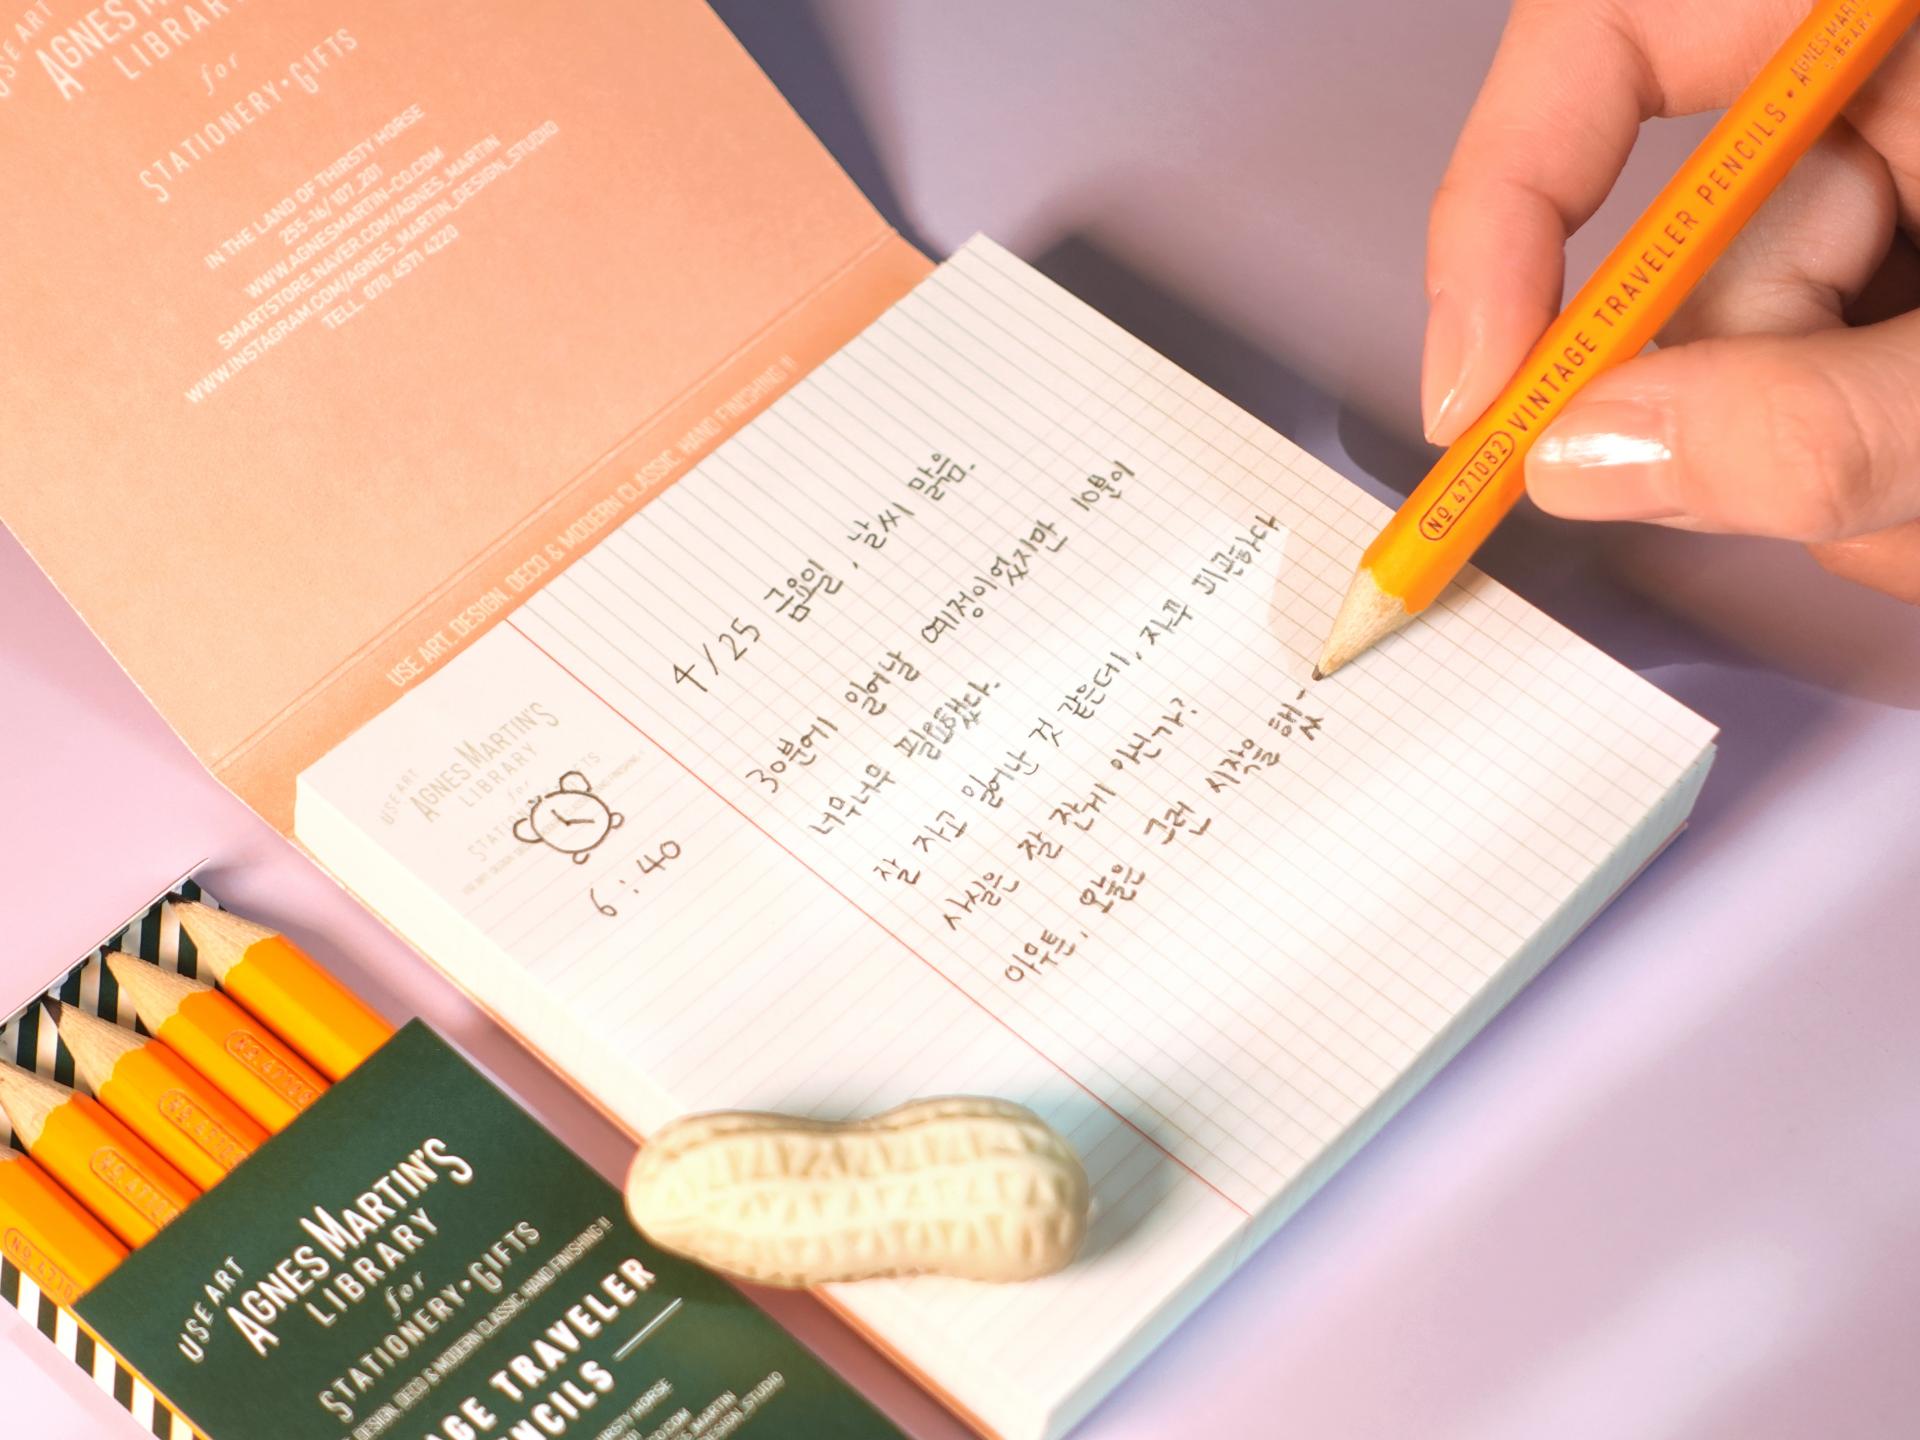 USE ART
AGNES
LIBRARY
for
STATIONERY•GIFTS
IN THE LAND OF THIRSTY HORSE
255-16/ 107_201
WWW.AGNESMARTIN-CO.COM
SMARTSTORE.NAVER.COM/AGNES_MARTIN
WWW.INSTAGRAM.COM/AGNES_MARTIN_DESIGN_STUDIO
TELL. 070 4571 4220
USE ART, DESIGN, DECO & MODERN CLASSIC, HAND FINISHING !!
4/25 금요일, 날씨 맑음.
30분에 일어날 예정이었지만 10분이
너무너무 필요했다.
잘 자고 일어난 것 같은데, 자꾸 피곤하다
사실은 잘 잔게 아닌가?
아무튼, 오늘은 그런 시작을 했
USE ART
AGNES MARTIN'S
LIBRARY
for
6:40
No.471082 VINTAGE TRAVELER PENCILS • AGNES MARTIN
LIBRARY
USE ART
AGNES MARTIN'S
LIBRARY
for
STATIONERY•GIFTS
DESIGN, DECO & MODERN CLASSIC, HAND FINISHING !!
TRAVELER